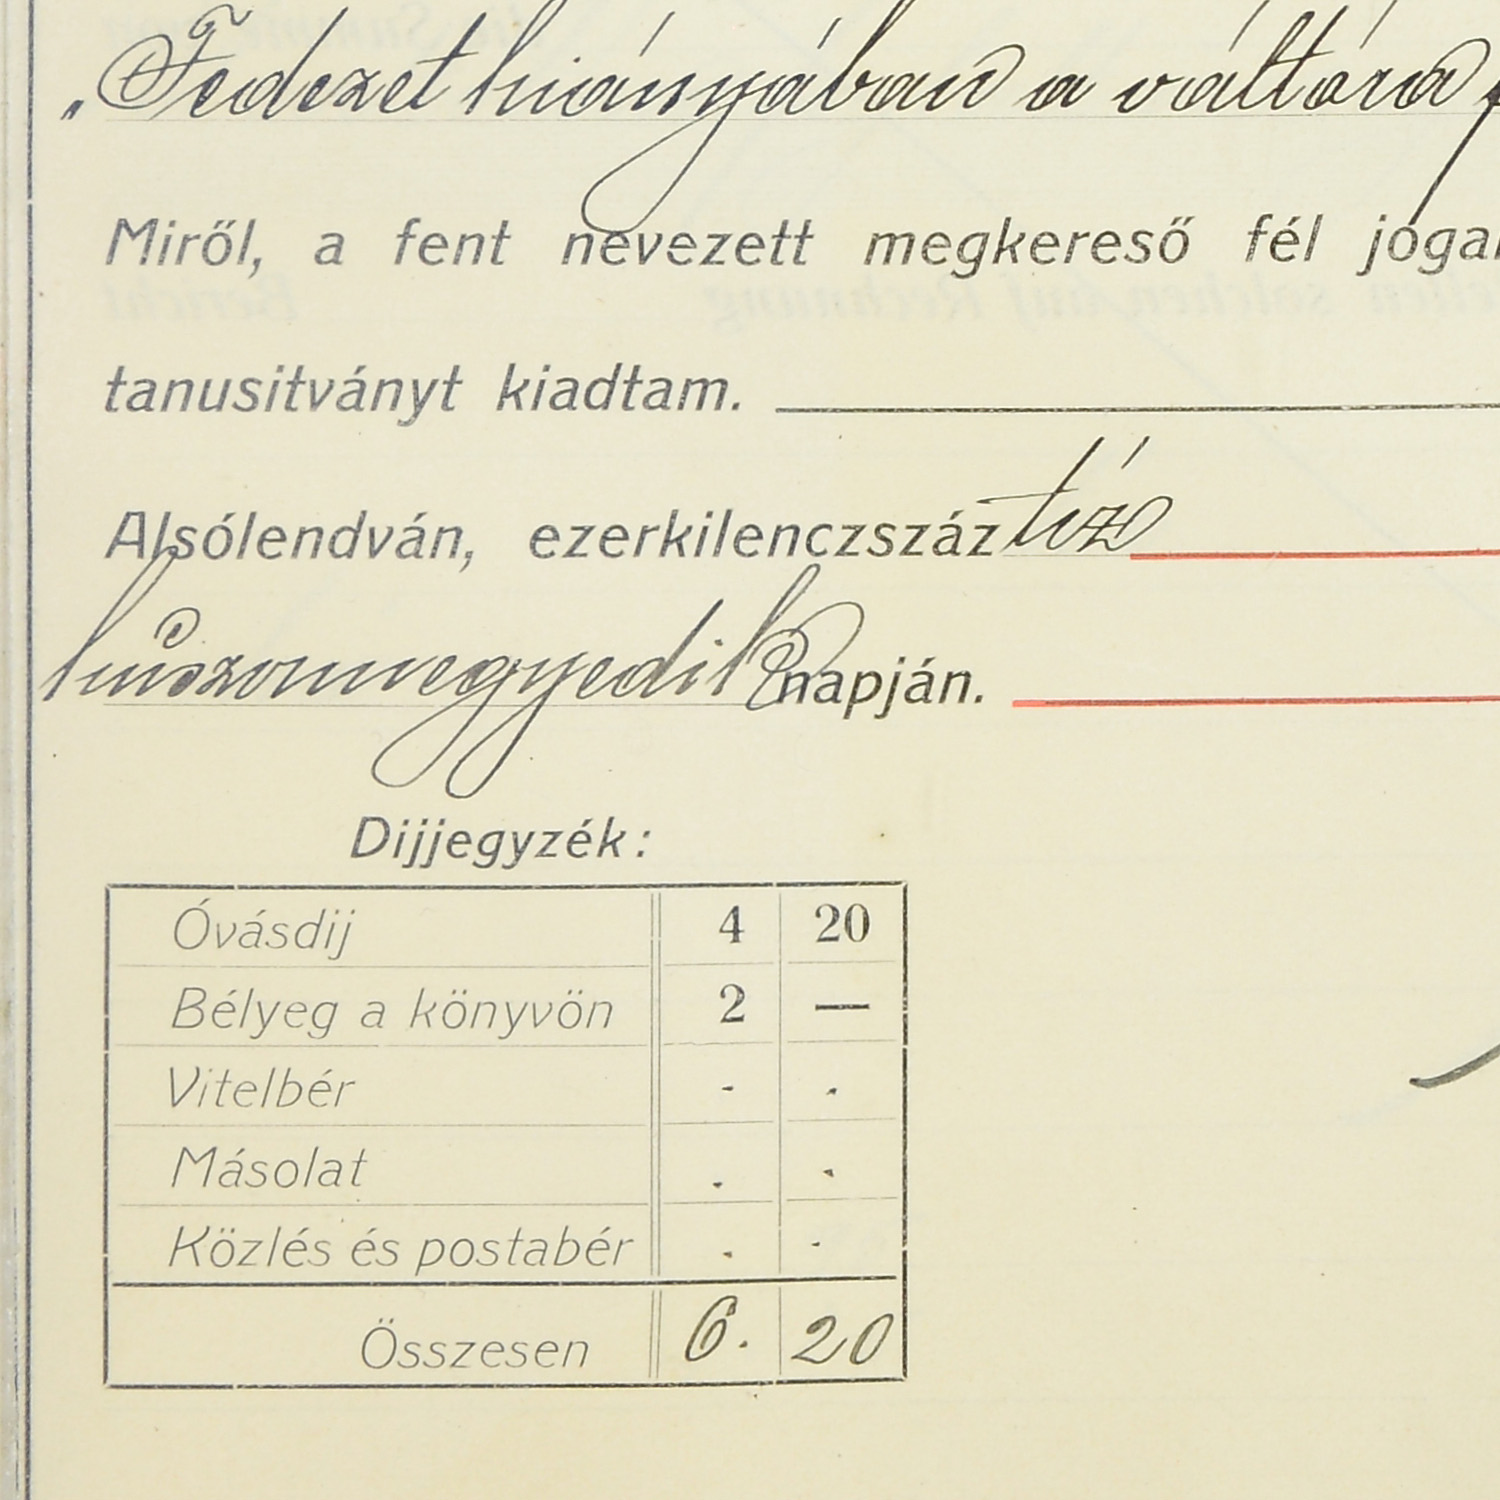 „Fedezet hiányában a váltóra
Miről, a fent nevezett megkereső fél
tanusitványt kiadtam.
Alsólendván, ezerkilenczszáz tíz
huszonnegyedik napján.
Dijjegyzék:
Óvásdij 4 20
Bélyeg a könyvön 2 —
Vitelbér - .
Másolat . .
Közlés és postabér . .
Összesen 6. 20